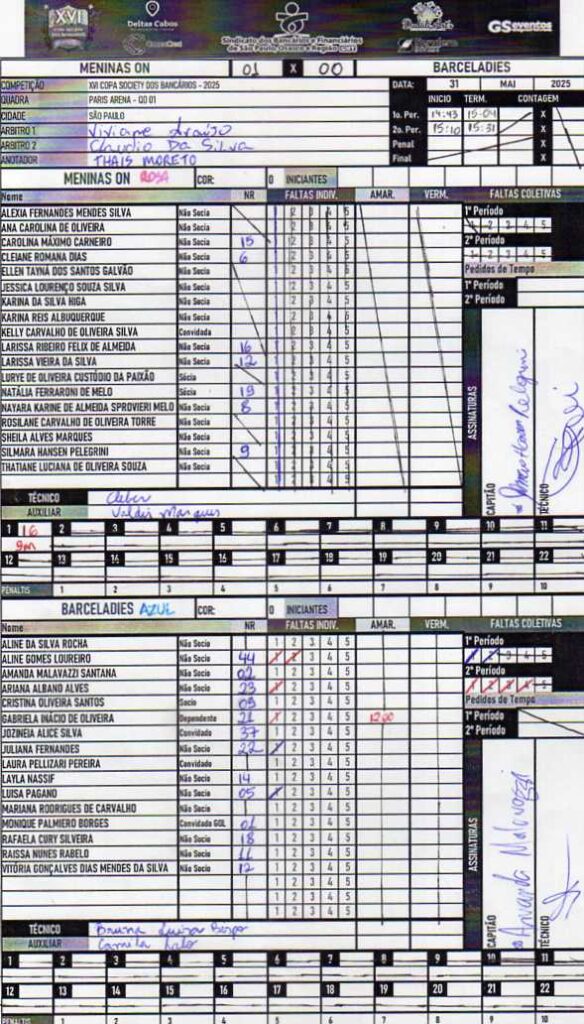 XVI
Deltas Cabos
Sindicato dos Bancários e Financiários
de São Paulo, Osasco e Região CUT
GSeventos
MENINAS ON 01 X 00 BARCELADIES
COMPETIÇÃO XVI COPA SOCIETY DOS BANCÁRIOS - 2025 DATA: 31 MAI 2025
QUADRA PARIS ARENA - QD 01 INICIO TERM. CONTAGEM
CIDADE SÃO PAULO 1o. Per. 14:43 15:04 X
ÁRBITRO 1 Viviane Araújo 2o. Per. 15:10 15:31 X
ÁRBITRO 2 Claudio Da Silva Penal X
ANOTADOR THAIS MORETO Final X
MENINAS ON ROSA COR: 0 INICIANTES
Nome NR FALTAS INDIV. AMAR. VERM. FALTAS COLETIVAS
ALEXIA FERNANDES MENDES SILVA Não Socia 1 2 3 4 5 1º Período
ANA CAROLINA DE OLIVEIRA Não Socia 1 2 3 4 5 1 2 3 4 5
CAROLINA MÁXIMO CARNEIRO Não Socia 15 1 2 3 4 5 2º Período
CLEIANE ROMANA DIAS Não Socia 6 1 2 3 4 5 1 2 3 4 5
ELLEN TAYNÁ DOS SANTOS GALVÃO Não Socia 1 2 3 4 5 Pedidos de Tempo
JESSICA LOURENÇO SOUZA SILVA Não Socia 1 2 3 4 5 1º Período
KARINA DA SILVA HIGA Não Socia 1 2 3 4 5 2º Período
KARINA REIS ALBUQUERQUE Não Socia 1 2 3 4 5
KELLY CARVALHO DE OLIVEIRA SILVA Convidada 1 2 3 4 5
LARISSA RIBEIRO FELIX DE ALMEIDA Não Socia 16 1 2 3 4 5
LARISSA VIEIRA DA SILVA Não Socia 12 1 2 3 4 5
LURYE DE OLIVEIRA CUSTÓDIO DA PAIXÃO Sócia 1 2 3 4 5
NATÁLIA FERRARONI DE MELO Sócia 19 1 2 3 4 5
NAYARA KARINE DE ALMEIDA SPROVIERI MELO Não Socia 8 1 2 3 4 5
ROSILANE CARVALHO DE OLIVEIRA TORRE Não Socia 1 2 3 4 5
SHEILA ALVES MARQUES Não Socia 1 2 3 4 5
SILMARA HANSEN PELEGRINI Não Socia 9 1 2 3 4 5
THATIANE LUCIANA DE OLIVEIRA SOUZA Não Socia 1 2 3 4 5
ASSINATURAS
CAPITÃO
TÉCNICO
TÉCNICO Cleber
AUXILIAR Valdir Marques
1 16 2 3 4 5 6 7 8 9 10 11
9m
12 13 14 15 16 17 18 19 20 21 22
PENALTIS 1 2 3 4 5 6 7 8 9 10
BARCELADIES AZUL COR: 0 INICIANTES
Nome NR FALTAS INDIV. AMAR. VERM. FALTAS COLETIVAS
ALINE DA SILVA ROCHA Não Socia 1 2 3 4 5 1º Período
ALINE GOMES LOUREIRO Não Socia 44 1 2 3 4 5 1 2 3 4 5
AMANDA MALAVAZZI SANTANA Não Socia 02 1 2 3 4 5 2º Período
ARIANA ALBANO ALVES Não Socia 23 1 2 3 4 5 1 2 3 4 5
CRISTINA OLIVEIRA SANTOS Socio 09 1 2 3 4 5 Pedidos de Tempo
GABRIELA INÁCIO DE OLIVEIRA Dependente 21 1 2 3 4 5 12:00 1º Período
JOZINEIA ALICE SILVA Convidado 37 1 2 3 4 5 2º Período
JULIANA FERNANDES Não Socio 22 1 2 3 4 5
LAURA PELLIZARI PEREIRA Convidado 1 2 3 4 5
LAYLA NASSIF Não Socio 14 1 2 3 4 5
LUISA PAGANO Não Socio 05 1 2 3 4 5
MARIANA RODRIGUES DE CARVALHO Não Socio 1 2 3 4 5
MONIQUE PALMIERO BORGES Convidada GOL 01 1 2 3 4 5
RAFAELA CURY SILVEIRA Não Socio 18 1 2 3 4 5
RAISSA NUNES RABELO Não Socio 11 1 2 3 4 5
VITÓRIA GONÇALVES DIAS MENDES DA SILVA Não Socio 12 1 2 3 4 5
1 2 3 4 5
1 2 3 4 5
ASSINATURAS
CAPITÃO Amanda Malavazzi
TÉCNICO
TÉCNICO Bruna
AUXILIAR Camila
1 2 3 4 5 6 7 8 9 10 11
12 13 14 15 16 17 18 19 20 21 22
PENALTIS 1 2 3 4 5 6 7 8 9 10